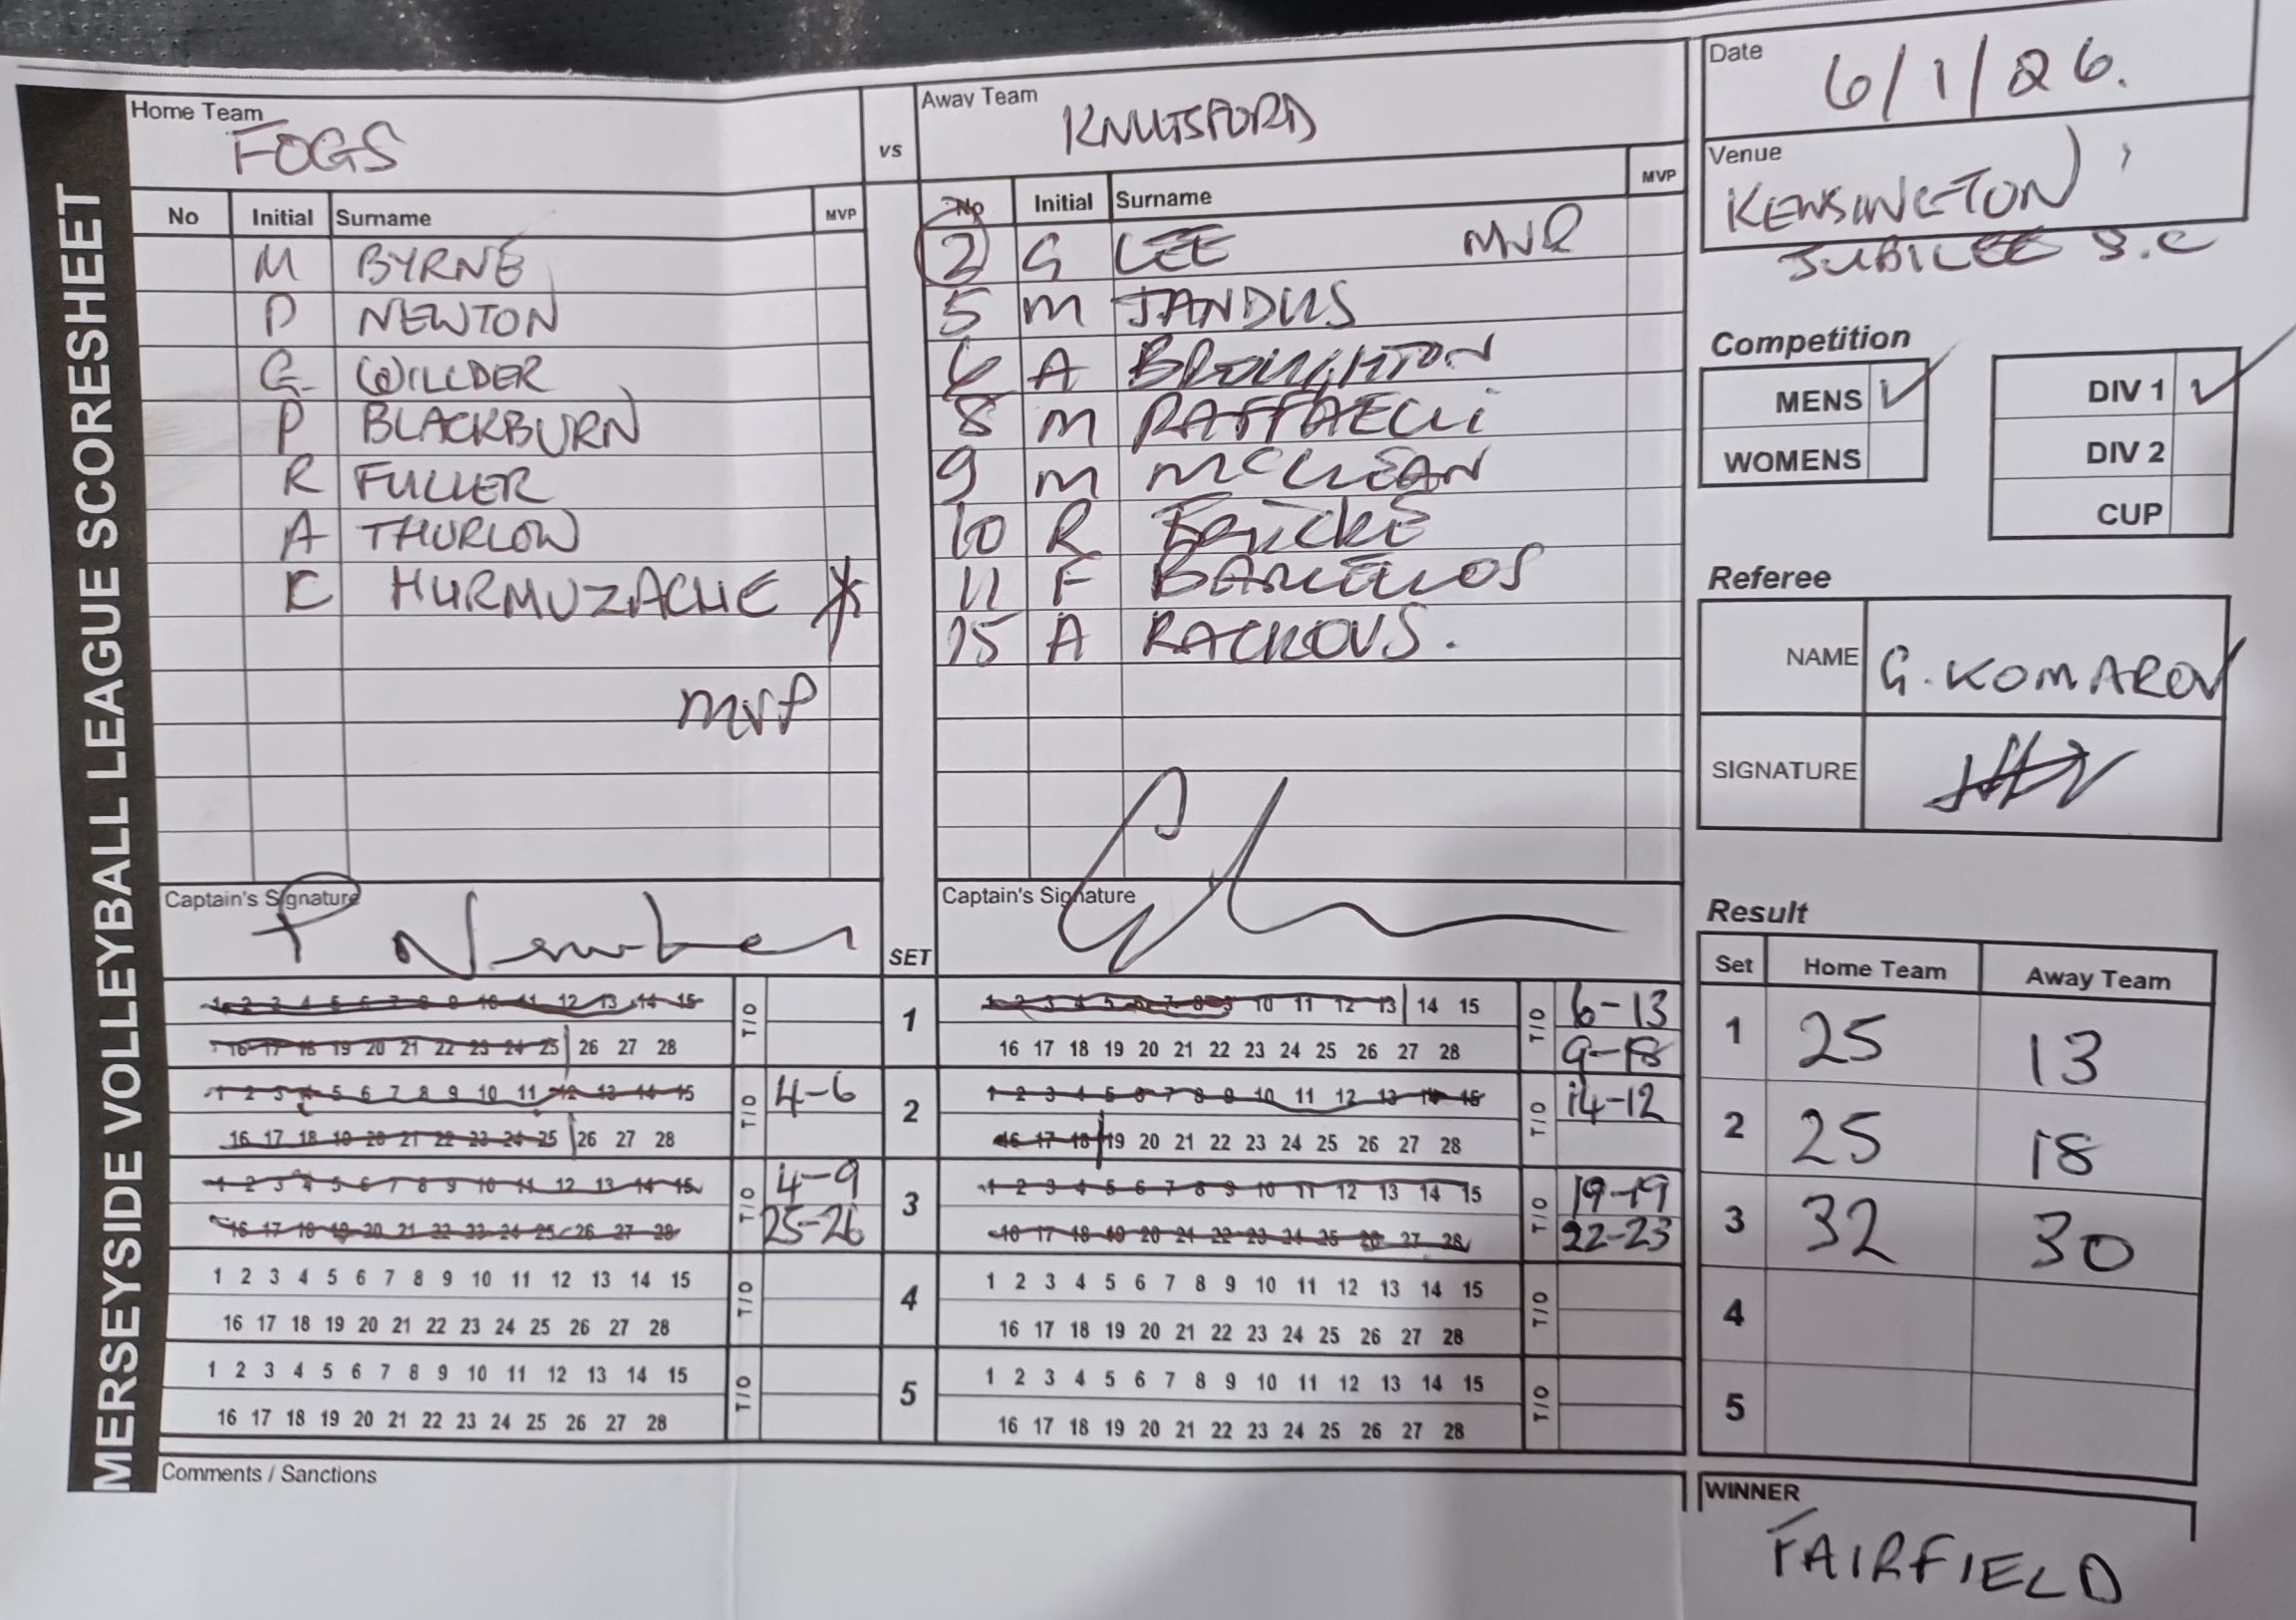 MERSEYSIDE VOLLEYBALL LEAGUE SCORESHEET
Home Team
FOGS
vs
Away Team
KNUTSFORD
Date
6/1/26.
Venue
KENSINGTON
JUBILEE S.C
No Initial Surname MVP
M BYRNE
P NEWTON
G WILLDER
P BLACKBURN
R FULLER
A THURLOW
C HURMUZACHE *
MVP
No Initial Surname MVP
2 G LEE MVP
5 M JANDUS
6 A BROUGHTON
8 M RAFFAELLi
9 M McLLEAN
10 R
11 F
15 A RACKOVS.
Competition
MENS ✓
WOMENS
DIV 1 ✓
DIV 2
CUP
Referee
NAME G. KOMAROV
SIGNATURE
Captain's Signature
P Newton
SET
Captain's Signature
1 2 3 4 5 6 7 8 9 10 11 12 13 14 15 T/O
16 17 18 19 20 21 22 23 24 25 26 27 28
1
1 2 3 4 5 6 7 8 9 10 11 12 13 14 15 T/O 6-13
16 17 18 19 20 21 22 23 24 25 26 27 28 9-18
1 2 3 4 5 6 7 8 9 10 11 12 13 14 15 T/O 4-6
16 17 18 19 20 21 22 23 24 25 26 27 28
2
1 2 3 4 5 6 7 8 9 10 11 12 13 14 15 T/O 14-12
16 17 18 19 20 21 22 23 24 25 26 27 28
1 2 3 4 5 6 7 8 9 10 11 12 13 14 15 T/O 4-9
16 17 18 19 20 21 22 23 24 25 26 27 28 25-26
3
1 2 3 4 5 6 7 8 9 10 11 12 13 14 15 T/O 19-19
16 17 18 19 20 21 22 23 24 25 26 27 28 22-23
1 2 3 4 5 6 7 8 9 10 11 12 13 14 15 T/O
16 17 18 19 20 21 22 23 24 25 26 27 28
4
1 2 3 4 5 6 7 8 9 10 11 12 13 14 15 T/O
16 17 18 19 20 21 22 23 24 25 26 27 28
1 2 3 4 5 6 7 8 9 10 11 12 13 14 15 T/O
16 17 18 19 20 21 22 23 24 25 26 27 28
5
1 2 3 4 5 6 7 8 9 10 11 12 13 14 15 T/O
16 17 18 19 20 21 22 23 24 25 26 27 28
Result
Set Home Team Away Team
1 25 13
2 25 18
3 32 30
4
5
Comments / Sanctions
WINNER
FAIRFIELD